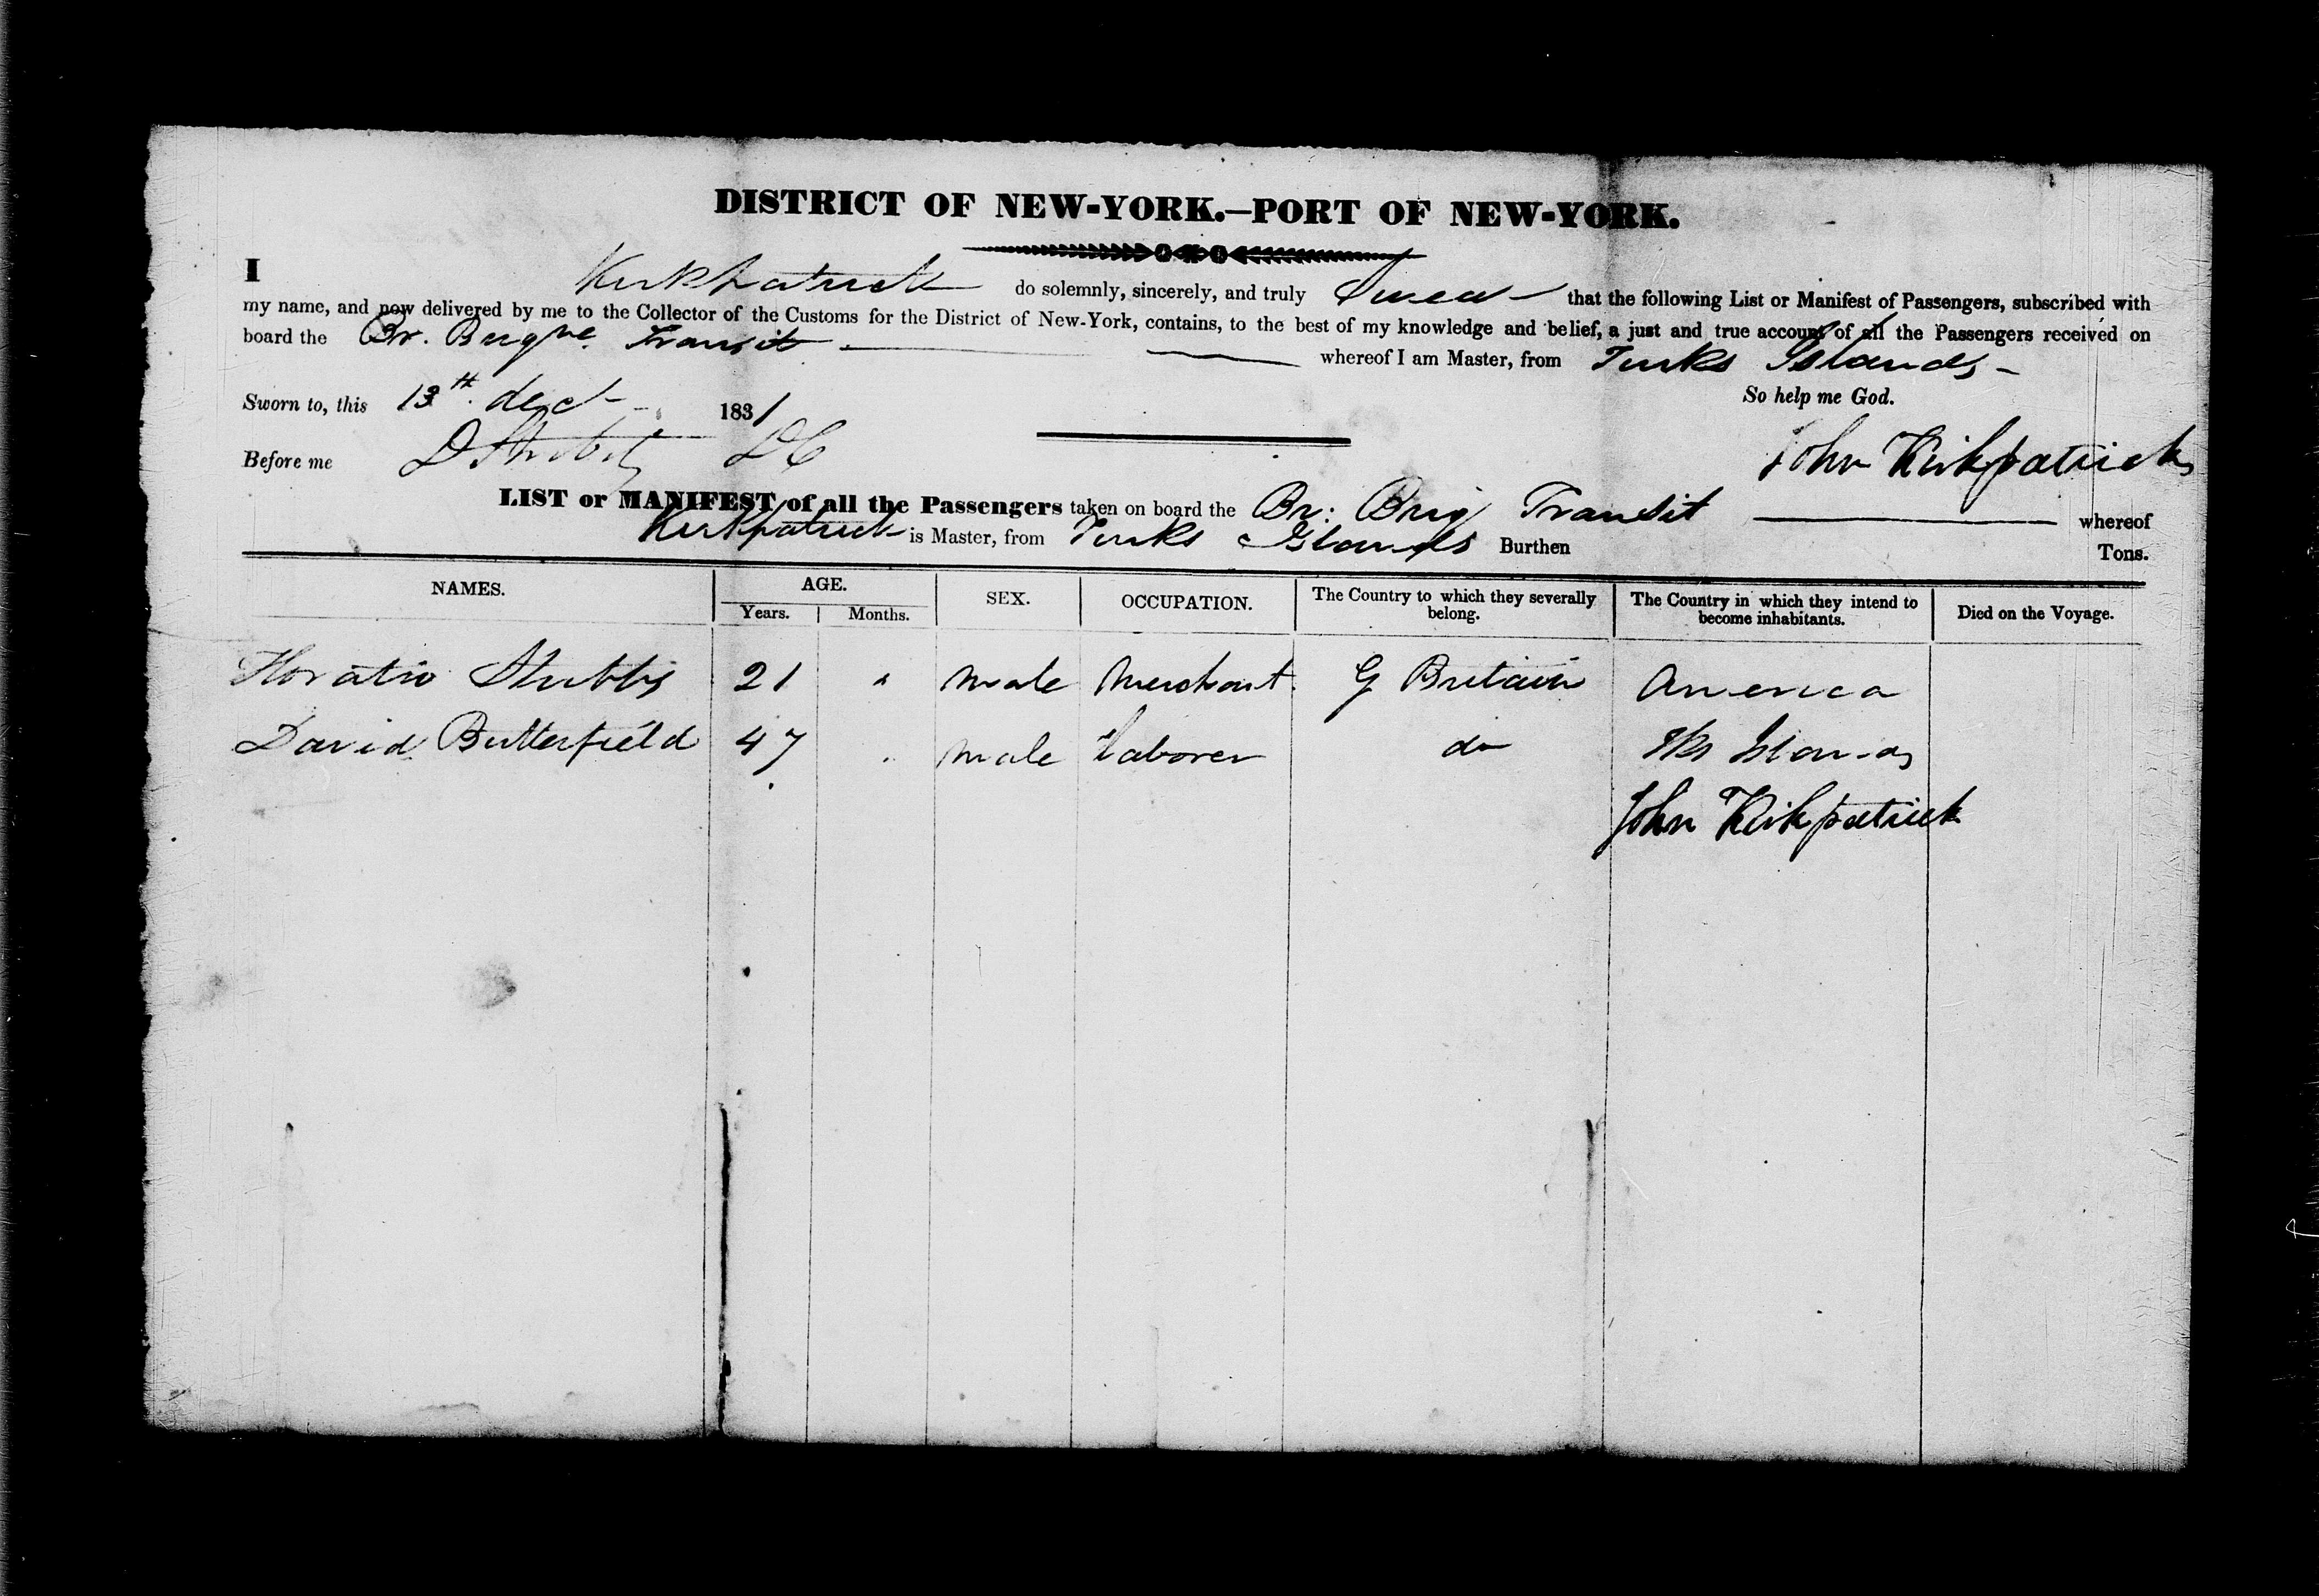 DISTRICT OF NEW-YORK.—PORT OF NEW-YORK.
I Kirkpatrick do solemnly, sincerely, and truly Swear that the following List or Manifest of Passengers, subscribed with
my name, and now delivered by me to the Collector of the Customs for the District of New-York, contains, to the best of my knowledge and belief, a just and true account of all the Passengers received on
board the Br. Brigne Transit whereof I am Master, from Turks Islands
So help me God.
Sworn to, this 13th dect 1831
Before me DC
John Kirkpatrick
LIST or MANIFEST of all the Passengers taken on board the Br: Brig Transit whereof
Kirkpatrick is Master, from Turks Islands Burthen Tons.
NAMES. AGE. SEX. OCCUPATION. The Country to which they severally belong. The Country in which they intend to become inhabitants. Died on the Voyage.
Years. Months.
Horatio Stubbs 21 " male Merchant. G Britain America
David Butterfield 47 male Laborer do Tks Islands
John Kirkpatrick